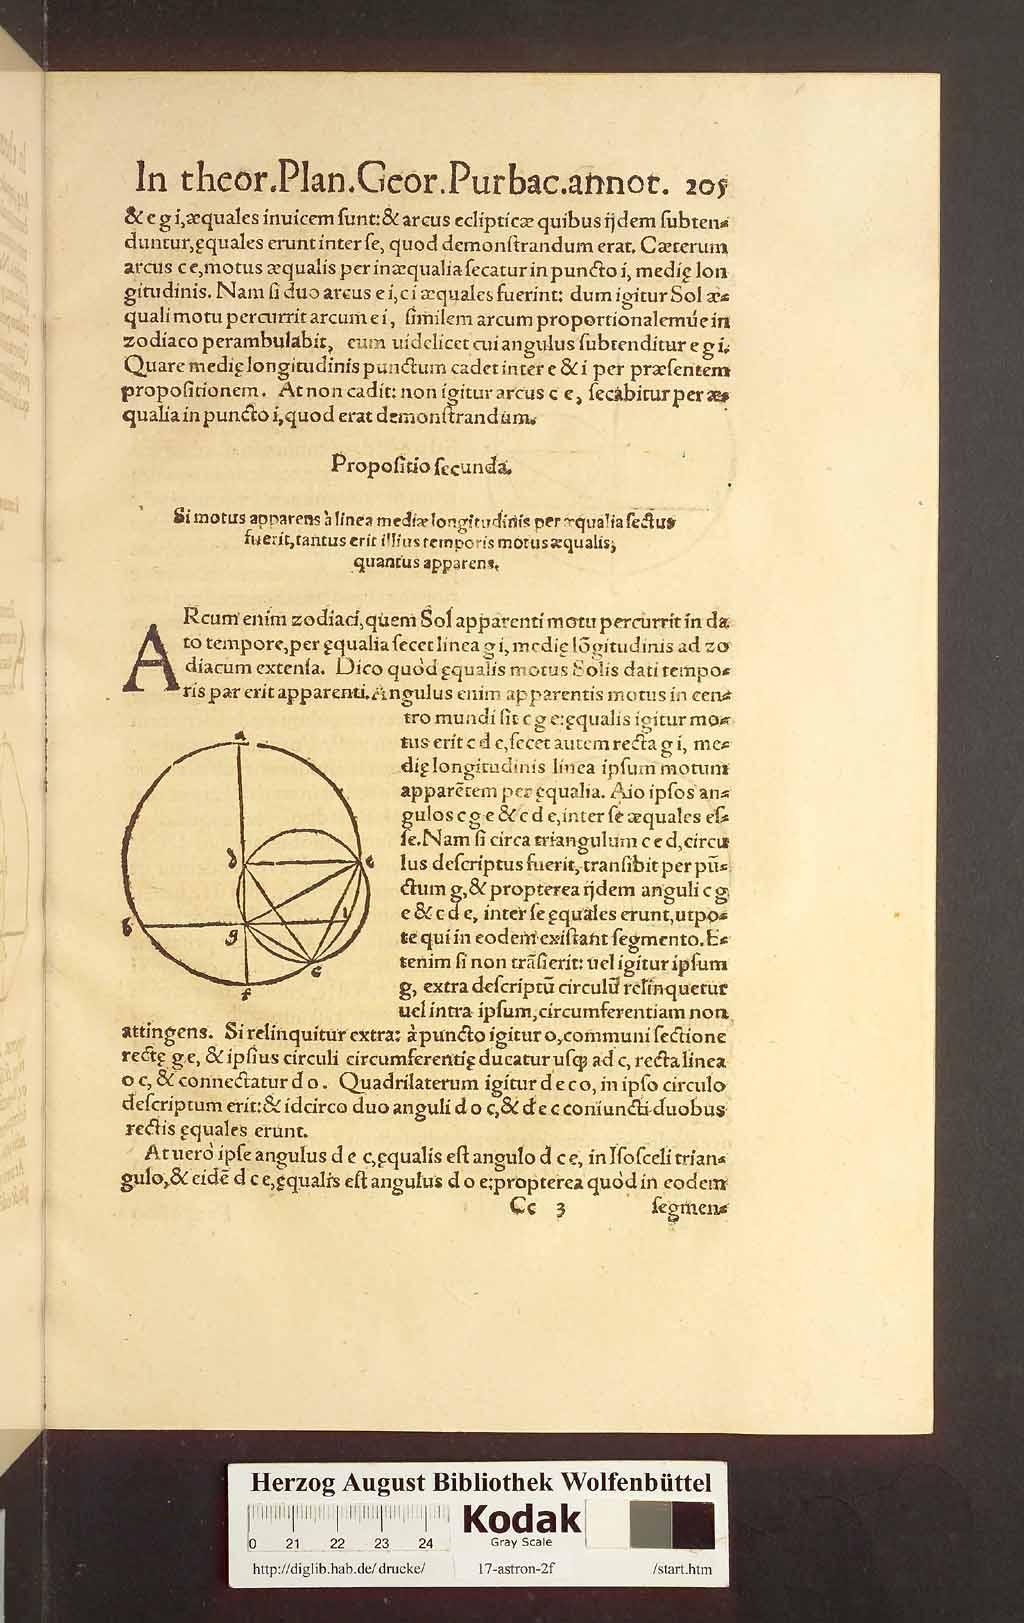 In theor.Plan.Geor.Purbac.annot. 205
& e g i, æquales inuicem sunt: & arcus eclipticæ quibus ijdem subten-
duntur, ęquales erunt inter se, quod demonstrandum erat. Cæterum
arcus c e, motus æqualis per inæqualia secatur in puncto i, medię lon
gitudinis. Nam si duo arcus e i, c i æquales fuerint: dum igitur Sol æ-
quali motu percurrit arcum e i, similem arcum proportionalemúe in
zodiaco perambulabit, eum uidelicet cui angulus subtenditur e g i.
Quare medię longitudinis punctum cadet inter e & i per præsentem
propositionem. At non cadit: non igitur arcus c e, secabitur per æ-
qualia in puncto i, quod erat demonstrandum.
Propositio secunda.
Si motus apparens à linea mediæ longitudinis per æqualia sectus
fuerit, tantus erit illius temporis motus æqualis,
quantus apparens.
ARcum enim zodiaci, quem Sol apparenti motu percurrit in da
to tempore, per ęqualia secet linea g i, medię lõgitudinis ad zo
diacum extensa. Dico quòd ęqualis motus Solis dati tempo-
ris par erit apparenti. Angulus enim apparentis motus in cen-
tro mundi sit c g e: ęqualis igitur mo-
tus erit c d e, secet autem recta g i, me-
dię longitudinis linea ipsum motum
apparẽtem per ęqualia. Aio ipsos an-
gulos c g e & c d e, inter se æquales es-
se. Nam si circa triangulum c e d, circu
lus descriptus fuerit, transibit per pũ-
ctum g, & propterea ijdem anguli c g
e & c d e, inter se ęquales erunt, utpo-
te qui in eodem existant segmento. E-
tenim si non trãsierit: uel igitur ipsum
g, extra descriptũ circulũ relinquetur
uel intra ipsum, circumferentiam non
a
d
e
b
g
i
c
f
attingens. Si relinquitur extra: à puncto igitur o, communi sectione
rectę g e, & ipsius circuli circumferentię ducatur usq; ad c, recta linea
o c, & connectatur d o. Quadrilaterum igitur d e c o, in ipso circulo
descriptum erit: & idcirco duo anguli d o c, & d e c coniuncti duobus
rectis ęquales erunt.
At uerò ipse angulus d e c, ęqualis est angulo d c e, in Isosceli trian-
gulo, & eidẽ d c e, ęqualis est angulus d o e: propterea quòd in eodem
Cc 3 segmen-
Herzog August Bibliothek Wolfenbüttel
0 21 22 23 24
Kodak
Gray Scale
http://diglib.hab.de/drucke/ 17-astron-2f /start.htm